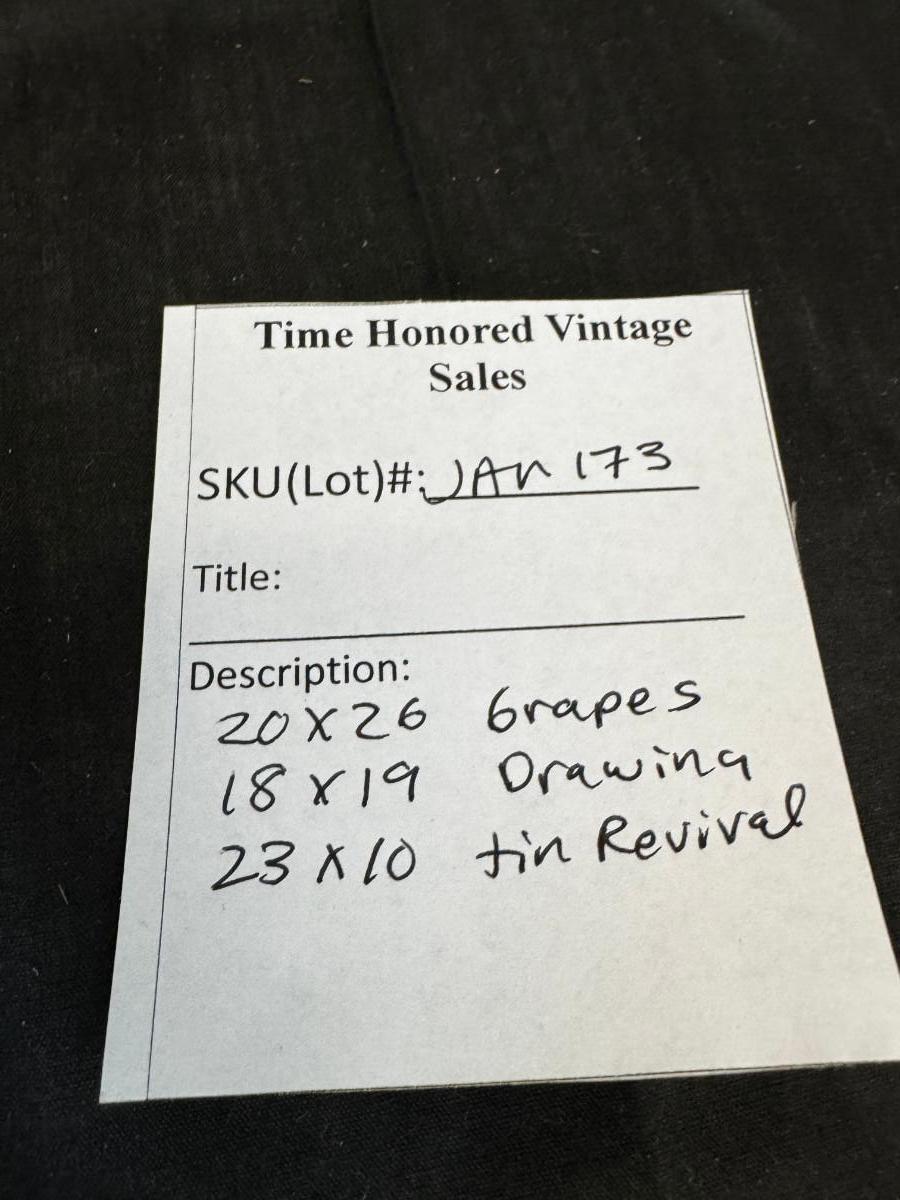 Time Honored Vintage
Sales
SKU(Lot)#: JAN 173
Title:
Description:
20 X 26 Grapes
18 X 19 Drawing
23 X 10 tin Revival